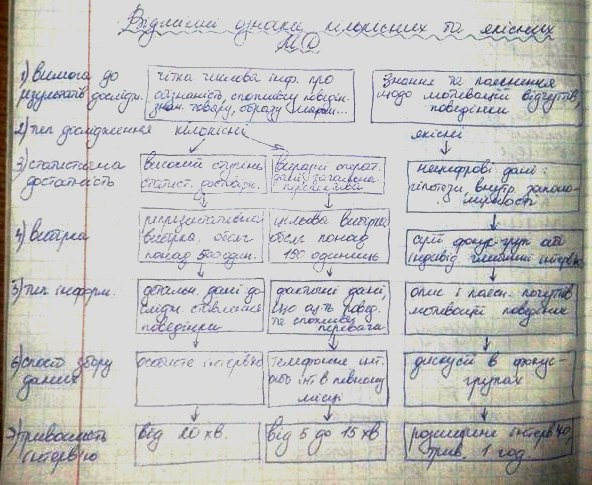 Відмінні ознаки кількісних та якісних
МО.
1) вимога до
результатів дослідж.
чітка числова інф. про
обізнаність, споживчу поведін.
знан. товару, образу марки...
Знання та пояснення
щодо мотивацій, відчуттів,
поведінки
2) тип дослідження
кількісні
якісні
3) статистична
достатність
високий ступінь
статист.
операт.
загальна
нецифрові дані
гіпотези, внутр. законо-
мірності
4) вибірка
репрезентативна
вибірка, обсяг
понад 500 один.
цільова вибірка
обсяг понад
150 одиниць
серії фокус-груп або
індивід. глибинні інтерв'ю
5) тип інформ.
детальні дані до-
ставлення
поведінки
фактичні дані,
що суть повед.
та споживчі
переваги
опис і поясн. почуттів
мотивацій поведінки
6) спосіб збору
даних
особисте інтерв'ю
телефонне інт.
або інт. в певному
місці
дискусії в фокус-
групах
7) тривалість
інтерв'ю
від 20 хв.
від 5 до 15 хв
розширене інтерв'ю,
трив. 1 год.